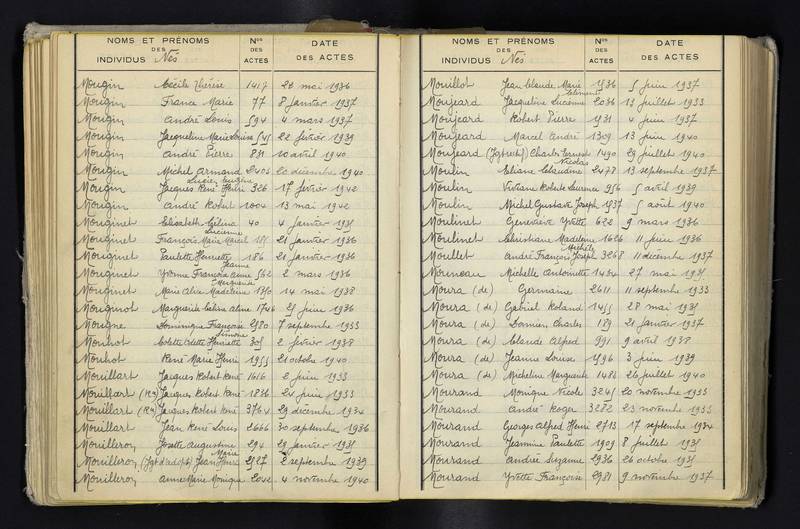 NOMS ET PRÉNOMS DES INDIVIDUS Nés
Nos DES ACTES
DATE DES ACTES
Mougin Cécile Thérèse 1417 28 mai 1936
Mougin France Marie 77 8 janvier 1937
Mougin André Louis 594 4 mars 1937
Mougin Jacqueline Marie Louise 545 22 février 1939
Mougin André Pierre 831 10 avril 1940
Mougin Michel Armand 2406 20 décembre 1940
Lucien Eugène
Mougin Jacques René Henri 326 17 février 1942
Mougin André Robert 1004 13 mai 1942
Mouginet Elisabeth Célina 40 4 janvier 1935
Lucienne
Mouginet François Marie Marcel 185 21 janvier 1936
Mouginet Paulette Henriette 186 21 janvier 1936
Jeanne
Mouginet Yvonne François Anne 562 2 mars 1936
Marguerite
Mouginet Marie Aline Madeleine 1310 14 mai 1938
Mouginot Marguerite Céline Aline 1746 25 juin 1936
Mougne Dominique Françoise 2980 7 septembre 1933
Simone
Mouhot Colette Odette Henriette 305 2 février 1938
Mouhot René Marie Henri 1955 21 octobre 1940
Mouillart Jacques Robert René 1616 2 juin 1933
Mouillart (Rn) Jacques Robert René 1836 24 juin 1933
Mouillart (Rn) Jacques Robert René 3764 29 décembre 1934
Mouillart Jean René Louis 2666 30 septembre 1936
Mouilleron Josette Augustine 294 29 janvier 1935
Marie
Mouilleron (Jgt d'adopt) Jean Henri 2927 2 septembre 1939
Mouilleron Anne Marie Monique 2042 4 novembre 1940
NOMS ET PRÉNOMS DES INDIVIDUS Nés
Nos DES ACTES
DATE DES ACTES
Mouillot Jean Claude Marie 1536 5 juin 1937
Clément
Moujeard Jacqueline Lucienne 2036 13 juillet 1933
Moujeard Robert Pierre 1531 4 juin 1937
Moujeard Marcel André 1309 13 juin 1940
Moujeard (Jgt rectif) Charles Ernest 1490 29 juillet 1940
Nicolas
Moulin Eliane Claudine 2478 13 septembre 1937
Moulin Viviane Kolete 956 5 avril 1939
Moulin Michel Gustave Joseph 1537 5 août 1940
Moulinet Geneviève Yvette 622 9 mars 1936
Moulinet Christiane Madeleine 1626 11 juin 1936
Michel
Moullet André François Joseph 3268 11 décembre 1937
Michelle Antoinette 1434 27 mai 1935
Moura (de) Germaine 2611 11 septembre 1933
Moura (de) Gabriel Roland 1455 28 mai 1935
Moura (de) Damien Charles 189 21 janvier 1937
Moura (de) Claude Alfred 991 9 avril 1938
Moura (de) Jeanne Louise 1596 3 juin 1939
Moura (de) Micheline Marguerite 1482 26 juillet 1940
Mourand Monique Nicole 3245 20 novembre 1933
Mourand André Roger 3282 23 novembre 1933
Mourand Georges Alfred Henri 2713 17 septembre 1934
Mourand Jeannine Paulette 1909 8 juillet 1935
Mourand Andrée Suzanne 2936 26 octobre 1935
Mourand Yvette Françoise 2981 9 novembre 1937